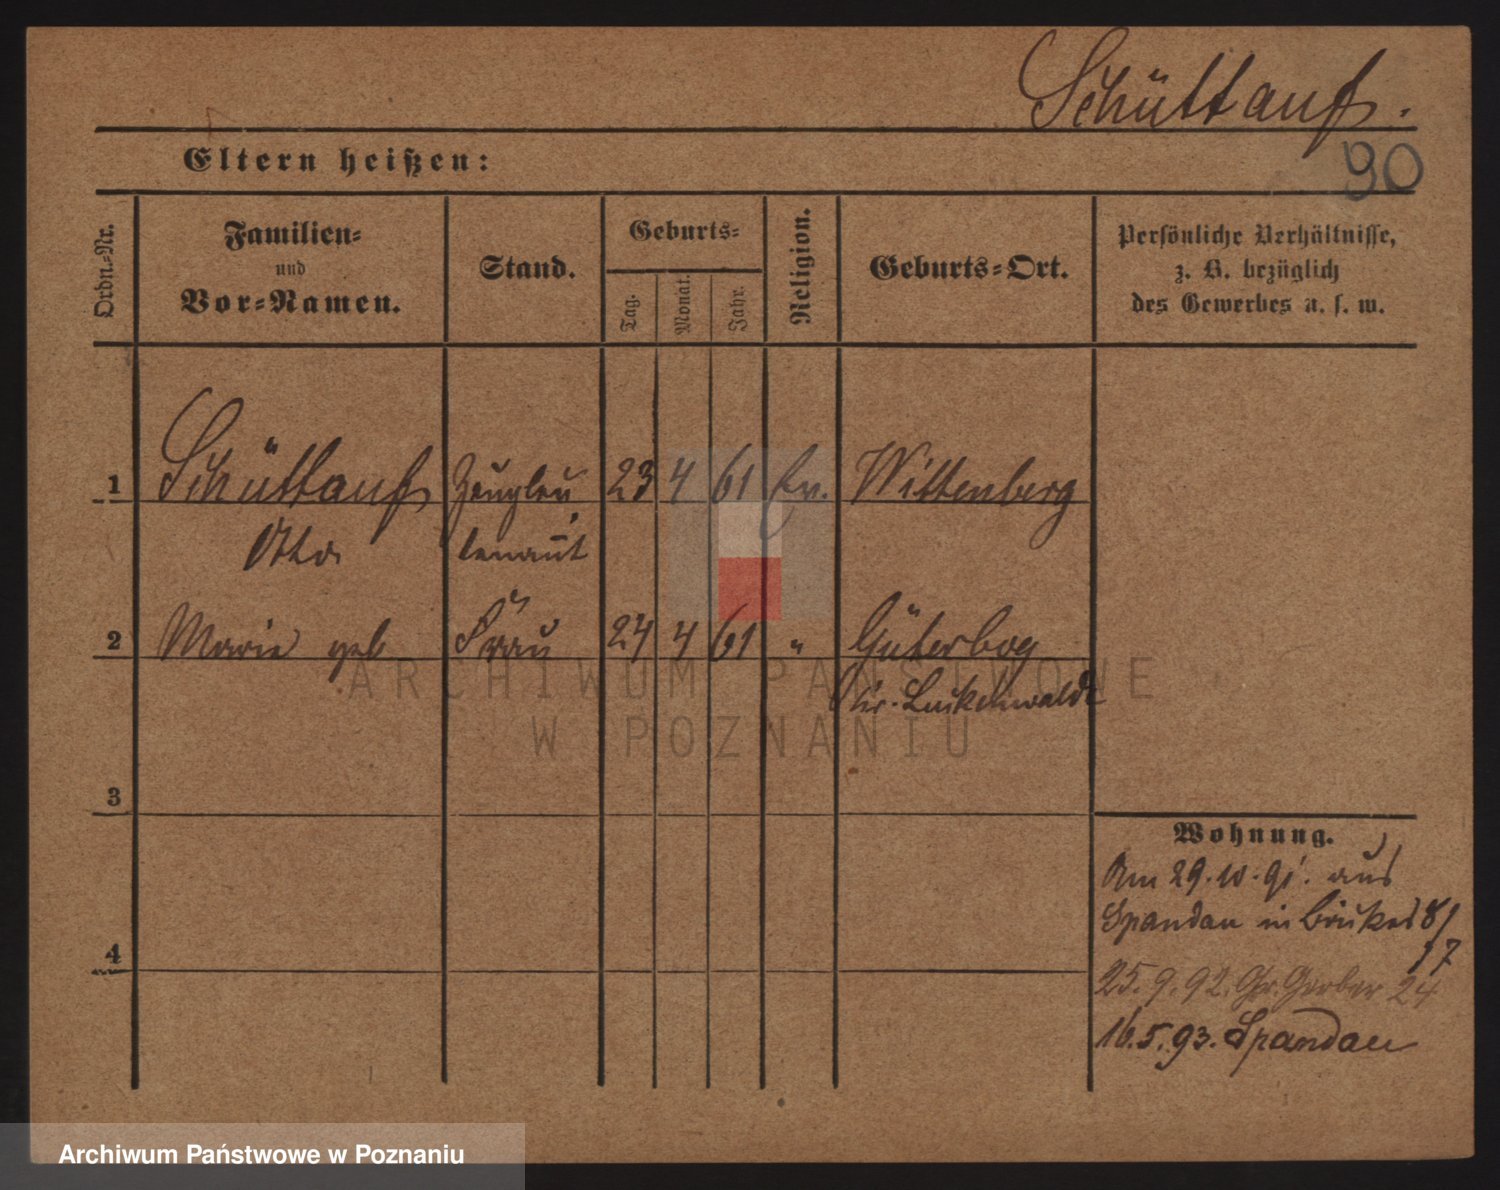 Schüttauf.
Eltern heißen:
90
Ordn.-Nr.
Familien-
und
Vor-Namen.
Stand.
Geburts-
Tag.
Monat.
Jahr.
Religion.
Geburts-Ort.
Persönliche Verhältnisse,
z. B. bezüglich
des Gewerbes u. s. w.
1 Schüttauf Zeugleu 23 4 61 Ev. Wittenberg
Otto tenant
2 Marie geb Frau 24 4 61 " Güterbog
Kr. Luckenwalde
3
Wohnung.
Am 29.10.91. aus
Spandau in 8/
17
4
25.9.92. Gr. Gerber 24
16.5.93. Spandau
ARCHIWUM PAŃSTWOWE
W POZNANIU
Archiwum Państwowe w Poznaniu